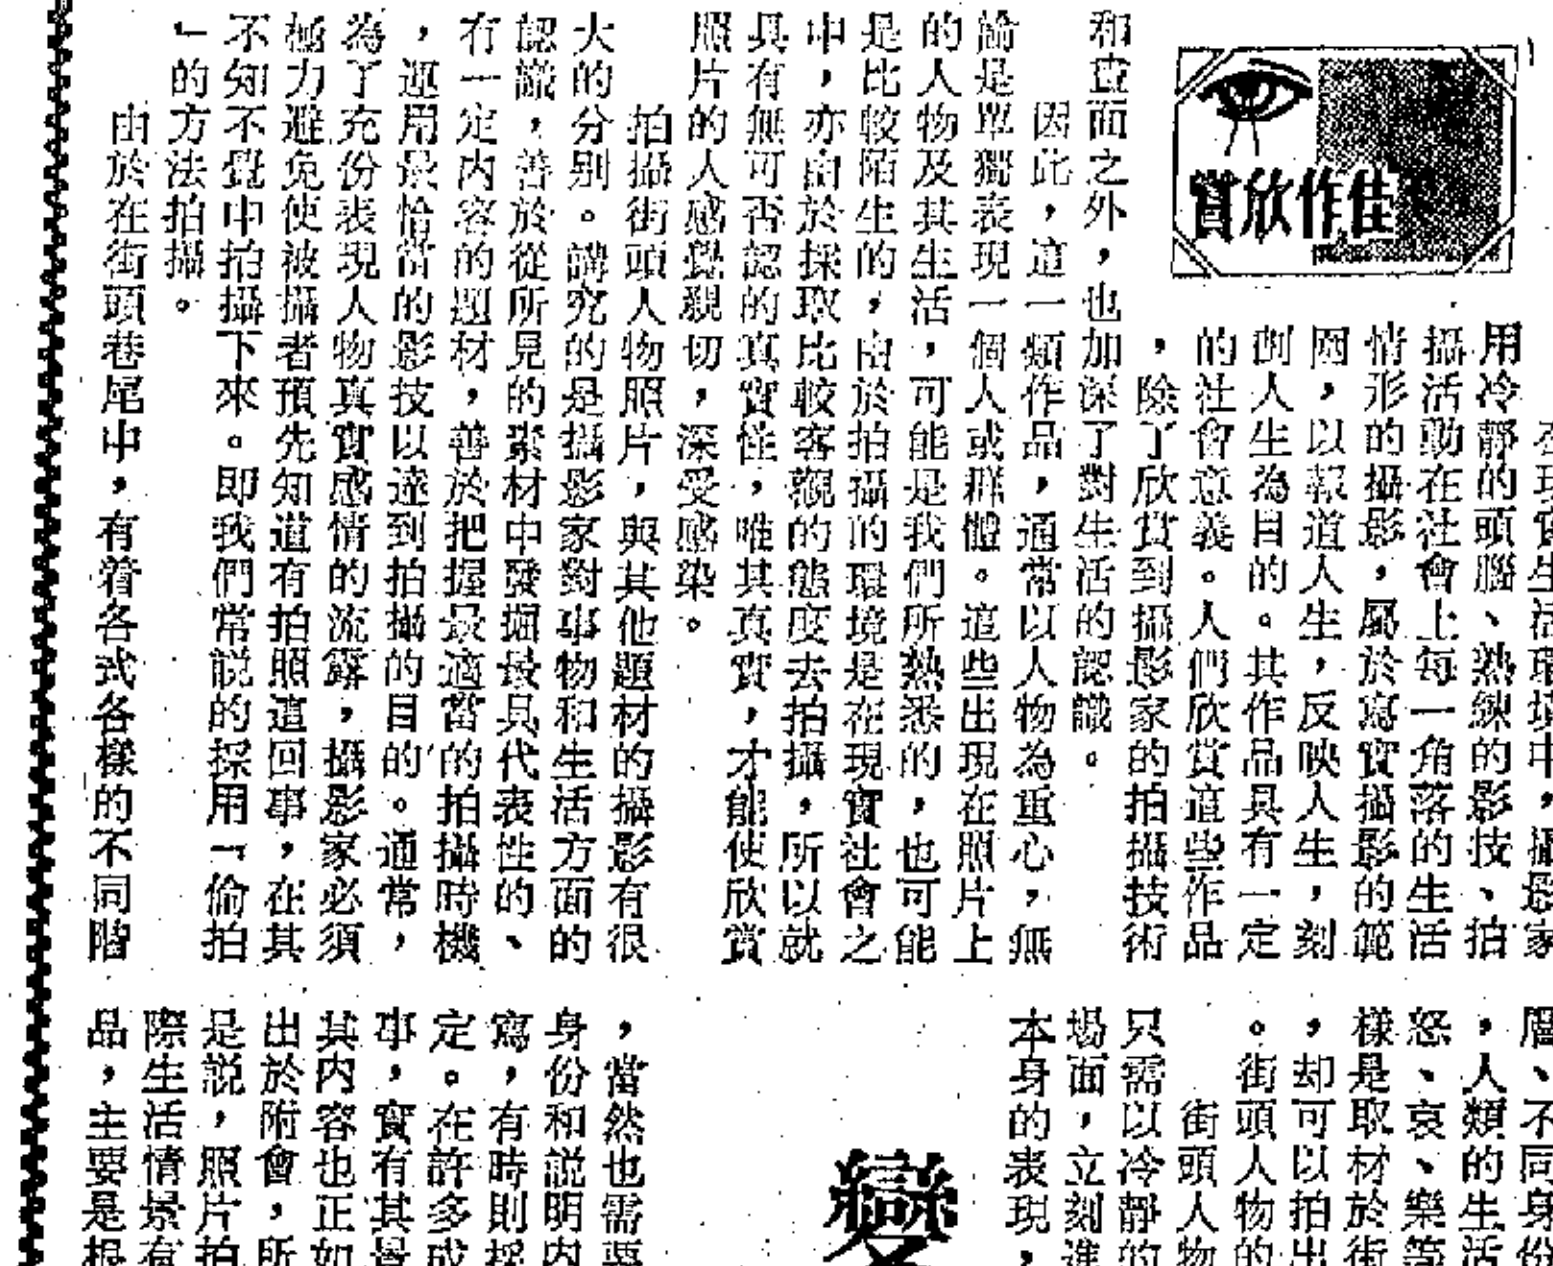 佳作欣賞
在現實生活環境中，攝影家
用冷靜的頭腦、熟練的影技、拍
攝活動在社會上每一角落的生活
情形的攝影，屬於寫實攝影的範
圍，以報道人生，反映人生，刻
劃人生為目的。其作品具有一定
的社會意義。人們欣賞這些作品
，除了欣賞到攝影家的拍攝技術
和畫面之外，也加深了對生活的認識。
因此，這一類作品，通常以人物為重心，無
論是單獨表現一個人或群體。這些出現在照片上
的人物及其生活，可能是我們所熟悉的，也可能
是比較陌生的，由於拍攝的環境是在現實社會之
中，亦由於採取比較客觀的態度去拍攝，所以就
具有無可否認的真實性，唯其真實，才能使欣賞
照片的人感覺親切，深受感染。
拍攝街頭人物照片，與其他題材的攝影有很
大的分別。講究的是攝影家對事物和生活方面的
認識，善於從所見的素材中發掘最具代表性的、
有一定內容的題材，善於把握最適當的拍攝時機
，運用最恰當的影技以達到拍攝的目的。通常，
為了充份表現人物真實感情的流露，攝影家必須
極力避免使被攝者預先知道有拍照這回事，在其
不知不覺中拍攝下來。即我們常說的採用「偷拍
」的方法拍攝。
由於在街頭巷尾中，有着各式各樣的不同階
層、不同身份
，人類的生活
怒、哀、樂等
樣是取材於街
，却可以拍出
。街頭人物的
街頭人物
只需以冷靜的
場面，立刻進
本身的表現，
變
，當然也需要
身份和說明內
寫，有時則採
定。在許多成
事，實有其景
其內容也正如
出於附會，所
是說，照片拍
際生活情景有
品，主要是根